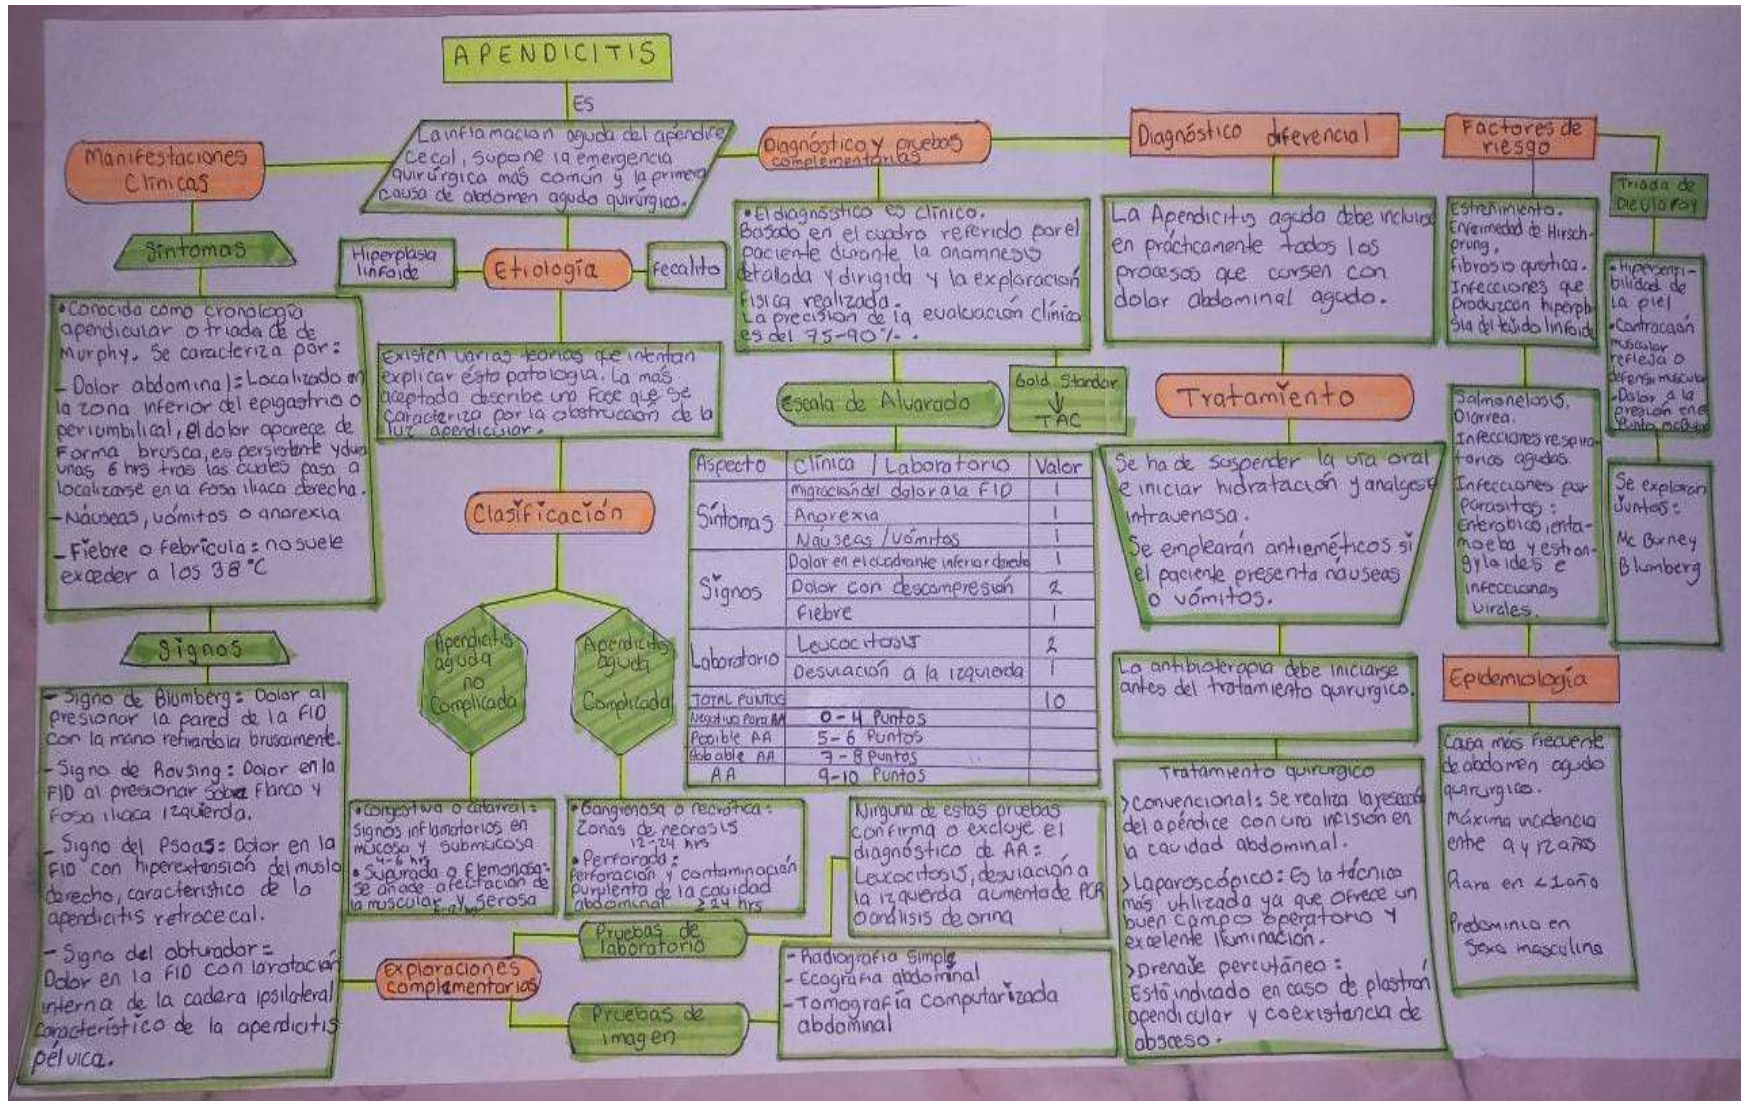 APENDICITIS
Es
La inflamación aguda del apéndice
cecal, supone la emergencia
quirúrgica más común y la primera
causa de abdomen agudo quirúrgico.
Manifestaciones
Clínicas
Síntomas
•Conocida como cronología
apendicular o triada de de
Murphy. Se caracteriza por:
- Dolor abdominal: Localizado en
la zona inferior del epigastrio o
periumbilical, el dolor aparece de
forma brusca, es persistente y dura
unas 6 hrs tras las cuales pasa a
localizarse en la fosa iliaca derecha.
- Náuseas, vómitos o anorexia
- Fiebre o febrícula: no suele
exceder a los 38°C
Signos
- Signo de Blumberg: Dolor al
presionar la pared de la FID
con la mano retirandola bruscamente.
- Signo de Rovsing: Dolor en la
FID al presionar sobre flanco y
fosa iliaca izquierda.
- Signo del Psoas: Dolor en la
FID con hiperextensión del muslo
derecho, característico de la
apendicitis retrocecal.
- Signo del obturador:
Dolor en la FID con la rotación
interna de la cadera ipsilateral
característico de la apendicitis
pélvica.
Hiperplasia
linfoide
Etiología
fecalito
Existen varias teorías que intentan
explicar esta patología. La más
aceptada describe una Fase que se
caracteriza por la obstrucción de la
luz apendicular.
Clasificación
Apendicitis
aguda
no
Complicada
Apendicitis
aguda
Complicada
•Congestiva o catarral:
Signos inflamatorios en
mucosa y submucosa
4-6 hrs
•Supurada o flemonosa:
se añade afectación de
la muscular y serosa
•Gangrenosa o necrótica:
Zonas de necrosis
12-24 hrs
•Perforada:
Perforación y contaminación
purulenta de la cavidad
abdominal ≥24 hrs
Exploraciones
complementarias
Pruebas de
laboratorio
Ninguna de estas pruebas
confirma o excluye el
diagnóstico de AA:
Leucocitosis, desviación a
la izquierda aumento de PCR
o análisis de orina
Pruebas de
imagen
- Radiografía Simple
- Ecografía abdominal
- Tomografía computarizada
abdominal
Diagnóstico y pruebas
complementarias
•El diagnóstico es clínico.
Basado en el cuadro referido por el
paciente durante la anamnesis
detallada y dirigida y la exploración
física realizada.
La precisión de la evaluación clínica
es del 75-90%.
Escala de Alvarado
Gold Standar
↓
TAC
Aspecto Clínica / Laboratorio Valor
Síntomas
Migración del dolor a la FID 1
Anorexia 1
Náuseas / vómitos 1
Signos
Dolor en el cuadrante inferior derecho 1
Dolor con descompresión 2
Fiebre 1
Laboratorio
Leucocitosis 2
Desviación a la izquierda 1
TOTAL PUNTOS 10
Negativo Para AA 0-4 Puntos
Posible AA 5-6 Puntos
Probable AA 7-8 Puntos
AA 9-10 Puntos
Diagnóstico diferencial
La Apendicitis aguda debe incluirse
en prácticamente todos los
procesos que cursen con
dolor abdominal agudo.
Tratamiento
Se ha de suspender la vía oral
e iniciar hidratación y analgesia
intravenosa.
Se emplearán antieméticos si
el paciente presenta náuseas
o vómitos.
La antibioterapia debe iniciarse
antes del tratamiento quirurgico.
Tratamiento quirurgico
>Convencional: Se realiza la resección
del apéndice con una incisión en
la cavidad abdominal.
>Laparoscópico: Es la técnica
más utilizada ya que ofrece un
buen campo operatorio y
excelente iluminación.
>Drenaje percutáneo:
Está indicado en caso de plastrón
apendicular y coexistencia de
absceso.
Factores de
riesgo
Estreñimiento.
Enfermedad de Hirsch-
prung.
Fibrosis quística.
Infecciones que
produzcan hiperpla-
sia del tejido linfoide
Salmonelosis.
Diarrea.
Infecciones respira-
torias agudas.
Infecciones por
parasitos:
Enterobios, enta-
moeba y estron-
gyloides e
infecciones
virales.
Epidemiología
Casa más frecuente
de abdomen agudo
quirurgico.
Máxima incidencia
entre 9 y 12 años
Rara en <1 año
Predominio en
sexo masculino
Triada de
Dieulafoy
•Hipersensi-
bilidad de
la piel
•Contracción
muscular
refleja o
defensa muscular
•Dolor a la
presión en el
Punto McBurney
Se exploran
Puntos:
Mc Burney
Blumberg